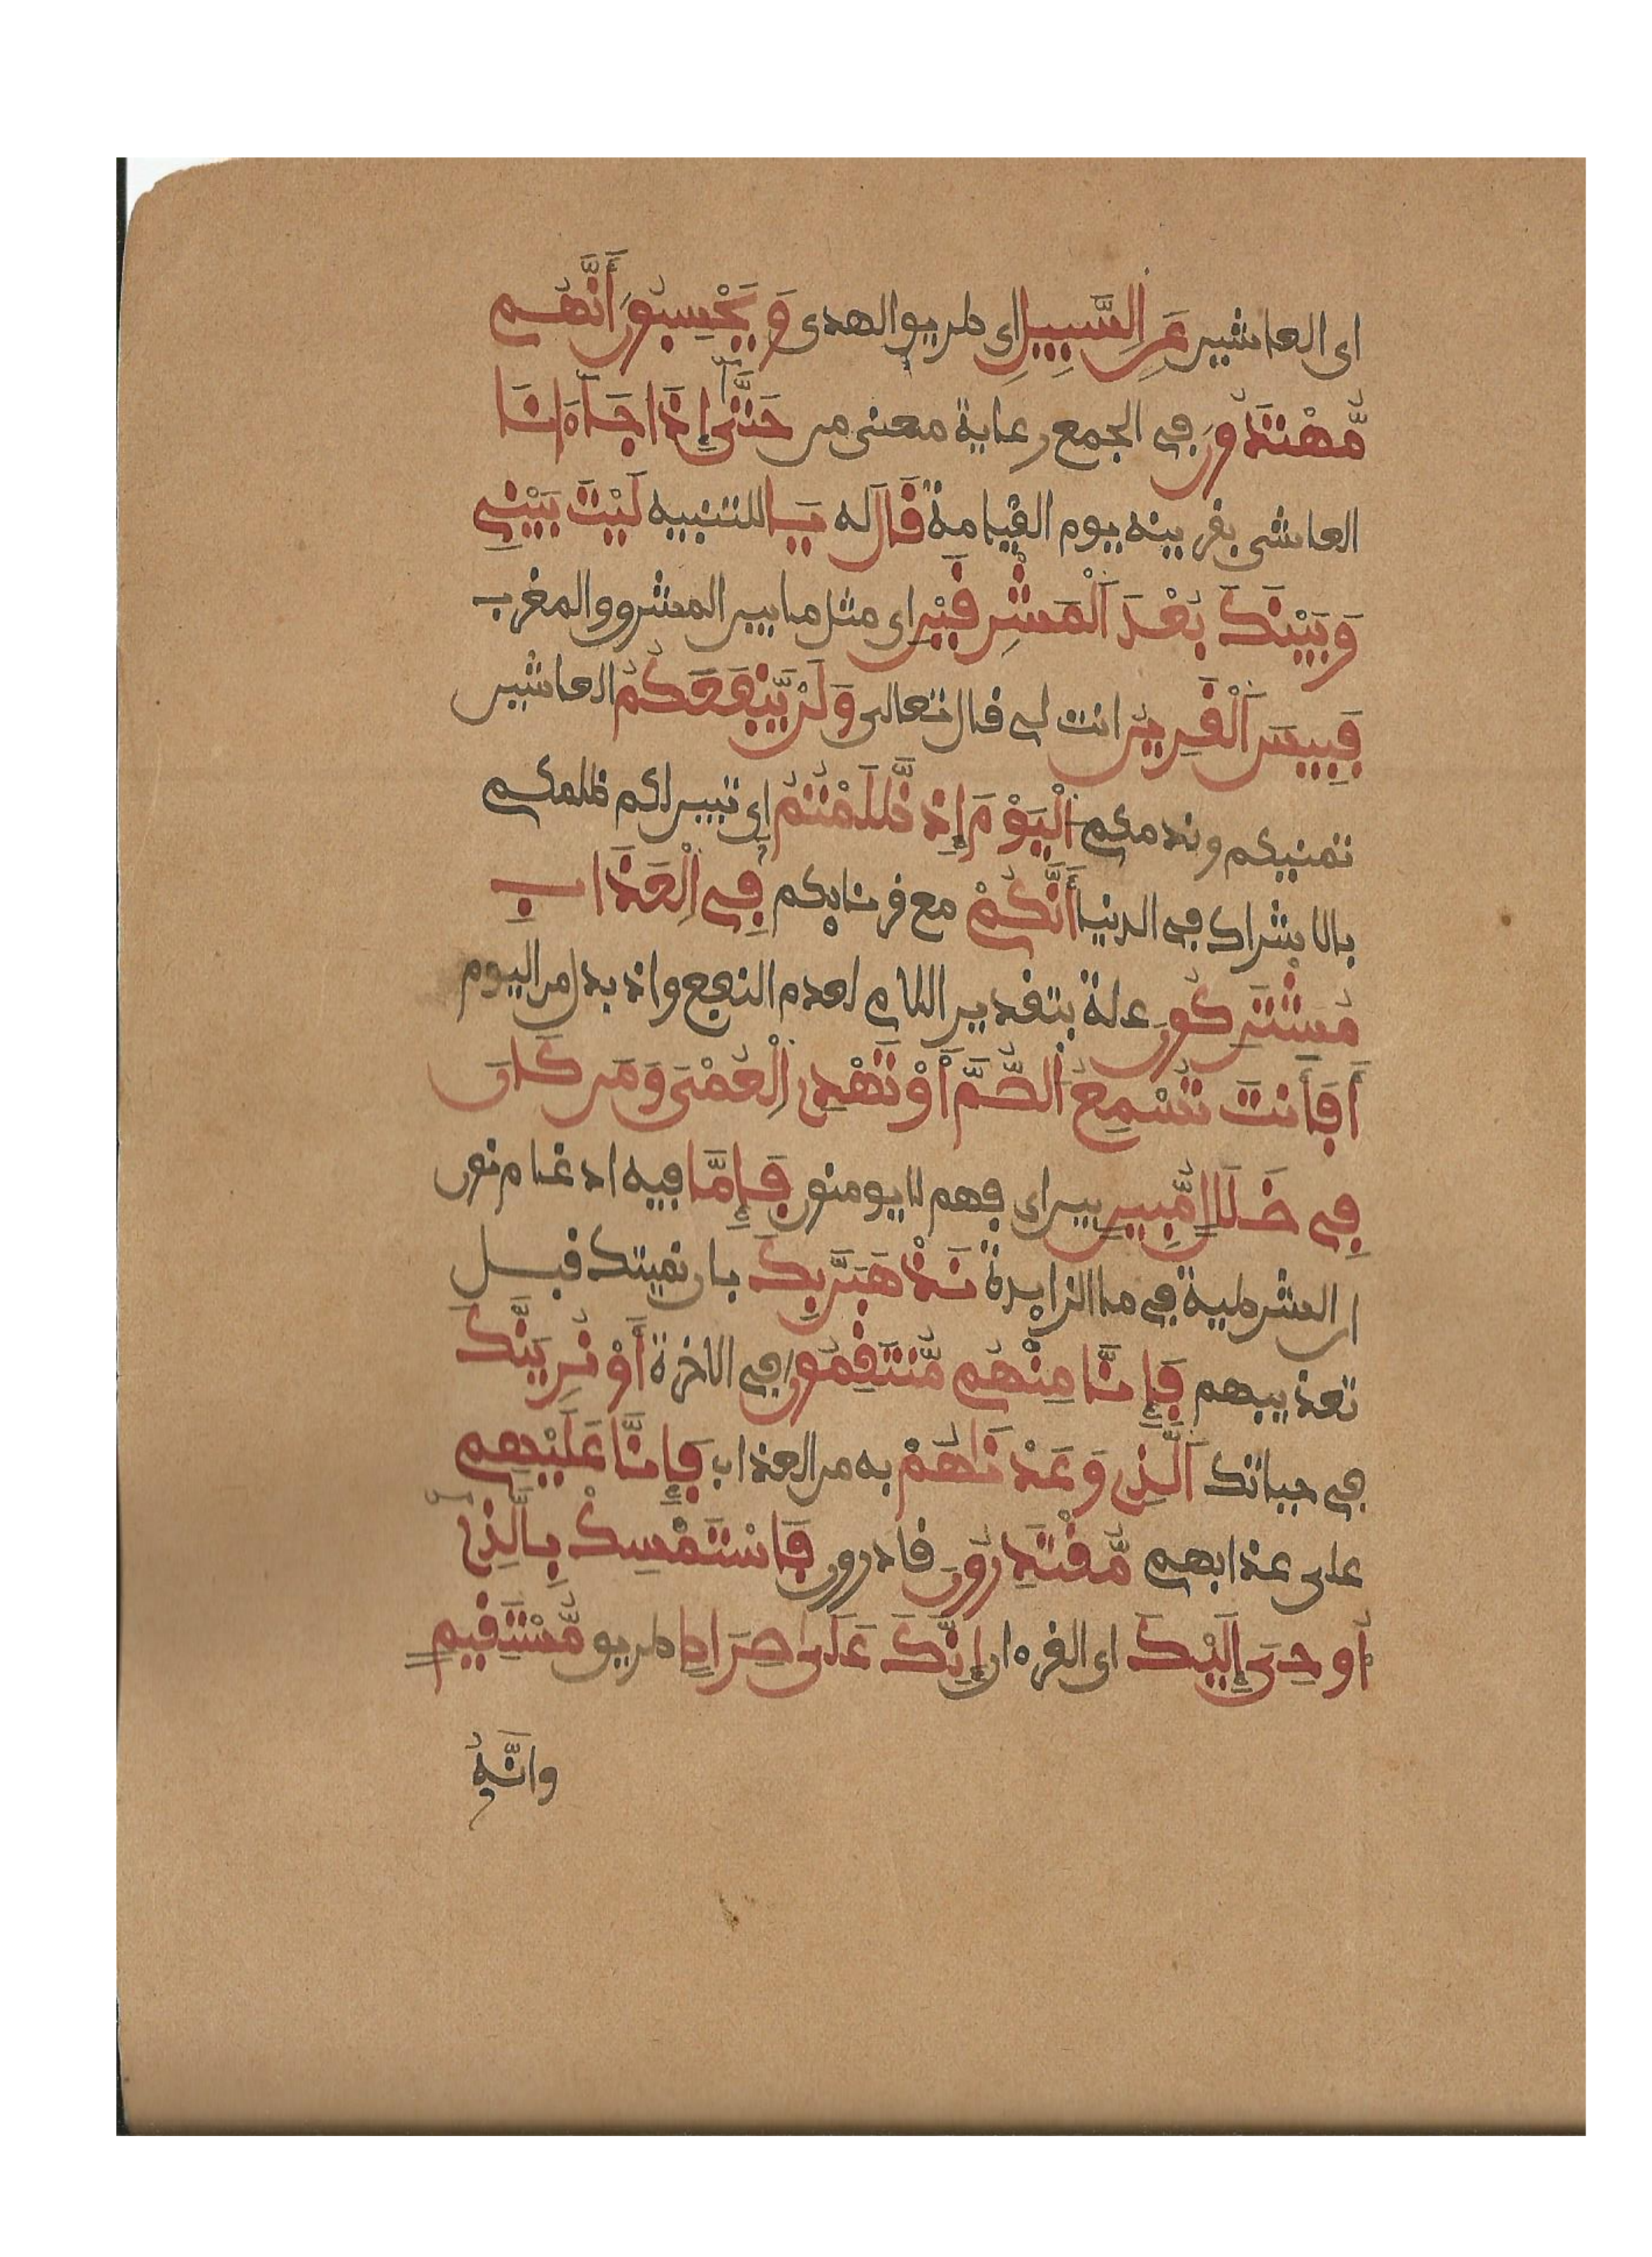 اى العاشين عَنِ السَّبِيلِ اى طريق الهدى وَيَحْسِبُونَ أَنَّهُم
مُّهْتَدُونَ فى الجمع رعاية معنى من حَتَّىٰ إِذَا جَآءَانَا
العاشى بقرينه يوم القيامة قَالَ له يَا للتنبيه لَيْتَ بَيْنِى
وَبَيْنَكَ بُعْدَ اَلْمَشْرِقَيْنِ اى مثل ما بين المشرق والمغرب
فَبِيسَ اَلْقَرِينُ انت لى قال تعالى وَلَنْ يَّنفَعَكُمُ العاشين
تمنيكم وندمكم اُلْيَوْمَ إِذ ظَّلَمْتُمُ اى تبين لكم ظلمكم
بالاشراك فى الدنيا أَنَّكُمْ مع قرنايكم فِى اِلْعَذَابِ
مُشْتَرِكُونَ علة بتقدير اللام لعدم النفع واذ بدل من اليوم
أَفَأَنتَ تُسْمِعُ اُلصُّمَّ أَوْ تَهْدِى اِلْعُمْىَ وَمَن كَانَ
فِى ضَلَٰلٍ مُّبِينٍ بين اى فهم لا يومنون فَإِمَّا فيه ادغام نون
ان الشرطية فى ما الزايدة نَذْهَبَنَّ بِكَ بان نميتك قبل
تعذيبهم فَإِنَّا مِنْهُم مُّنتَقِمُونَ فى الاخرة أَوْ نُرِيَنَّكَ
فى حياتك اَلَّذِى وَعَدْنَٰهُمْ به من العذاب فَإِنَّا عَلَيْهِم
على عذابهم مُّقْتَدِرُونَ قادرون فَاسْتَمْسِكْ بِالَّذِى
أُوحِىَ إِلَيْكَ اى القرءان إِنَّكَ عَلَىٰ صِرَاطٍ طريق مُّسْتَقِيمٍ
وانَّهُ